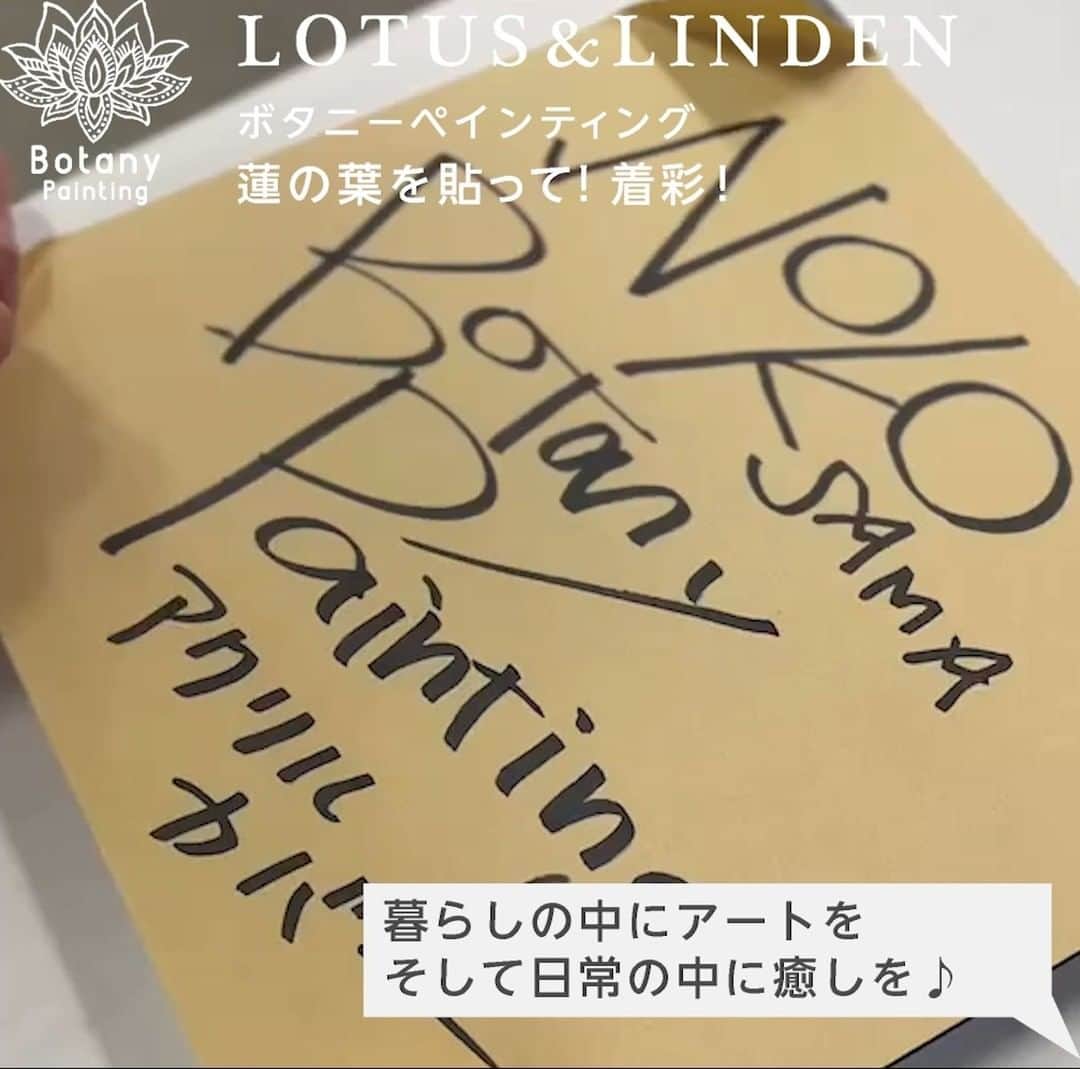 LOTUS&LINDEN
ボタニーペインティング
蓮の葉を貼って！着彩！
Botany
Painting
NOKO
SAMA
Botany
Painting
アクリル
カバー
暮らしの中にアートを
そして日常の中に癒しを♪